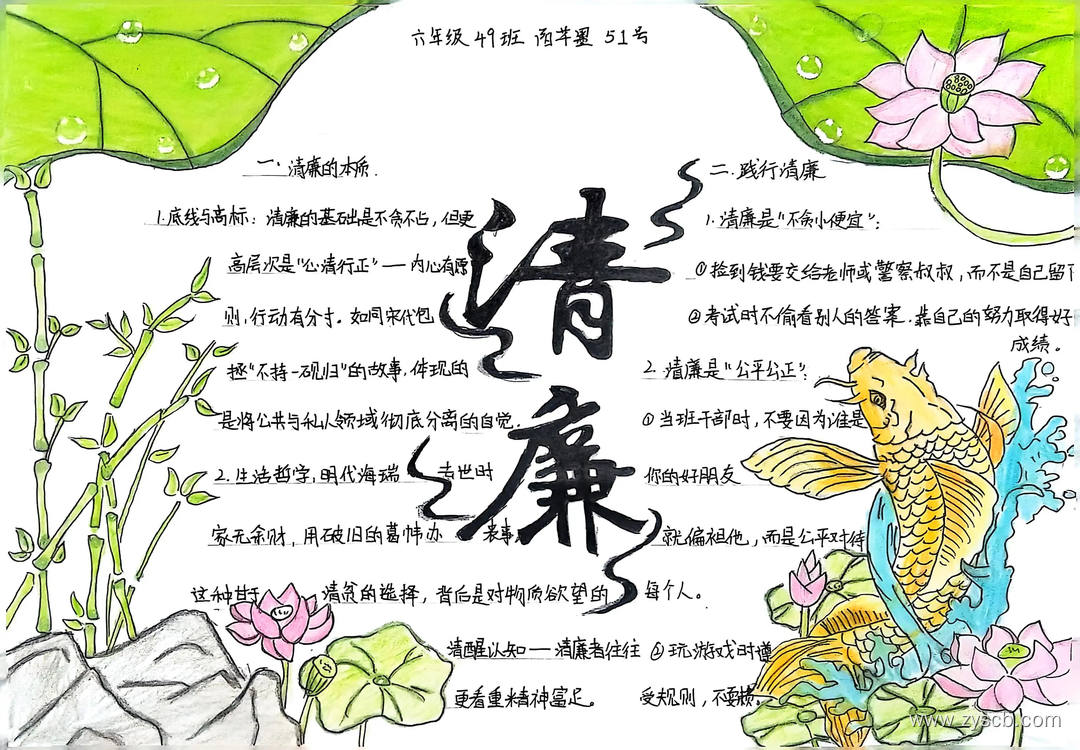 六年级 49班 51号
清廉
一. 清廉的本质.
1.底线与高标：清廉的基础是不贪不占，但更
高层次是"心清行正"——内心有原
则，行动有分寸。如同宋代包
拯"不持一砚归"的故事，体现的
是将公共与私人领域彻底分离的自觉.
2.生活哲学，明代海瑞 去世时
家无余财，用破旧的葛帏办 丧事
这种甘于 清贫的选择，背后是对物质欲望的
清醒认知——清廉者往往
更看重精神富足。
二.践行清廉
1.清廉是"不贪小便宜"：
①捡到钱要交给老师或警察叔叔，而不是自己留下
②考试时不偷看别人的答案.靠自己的努力取得好
成绩。
2.清廉是"公平公正"：
①当班干部时，不要因为谁是
你的好朋友
就偏袒他，而是公平对待
每个人。
②玩游戏时遵
受规则，不耍赖。
www.zyscb.com